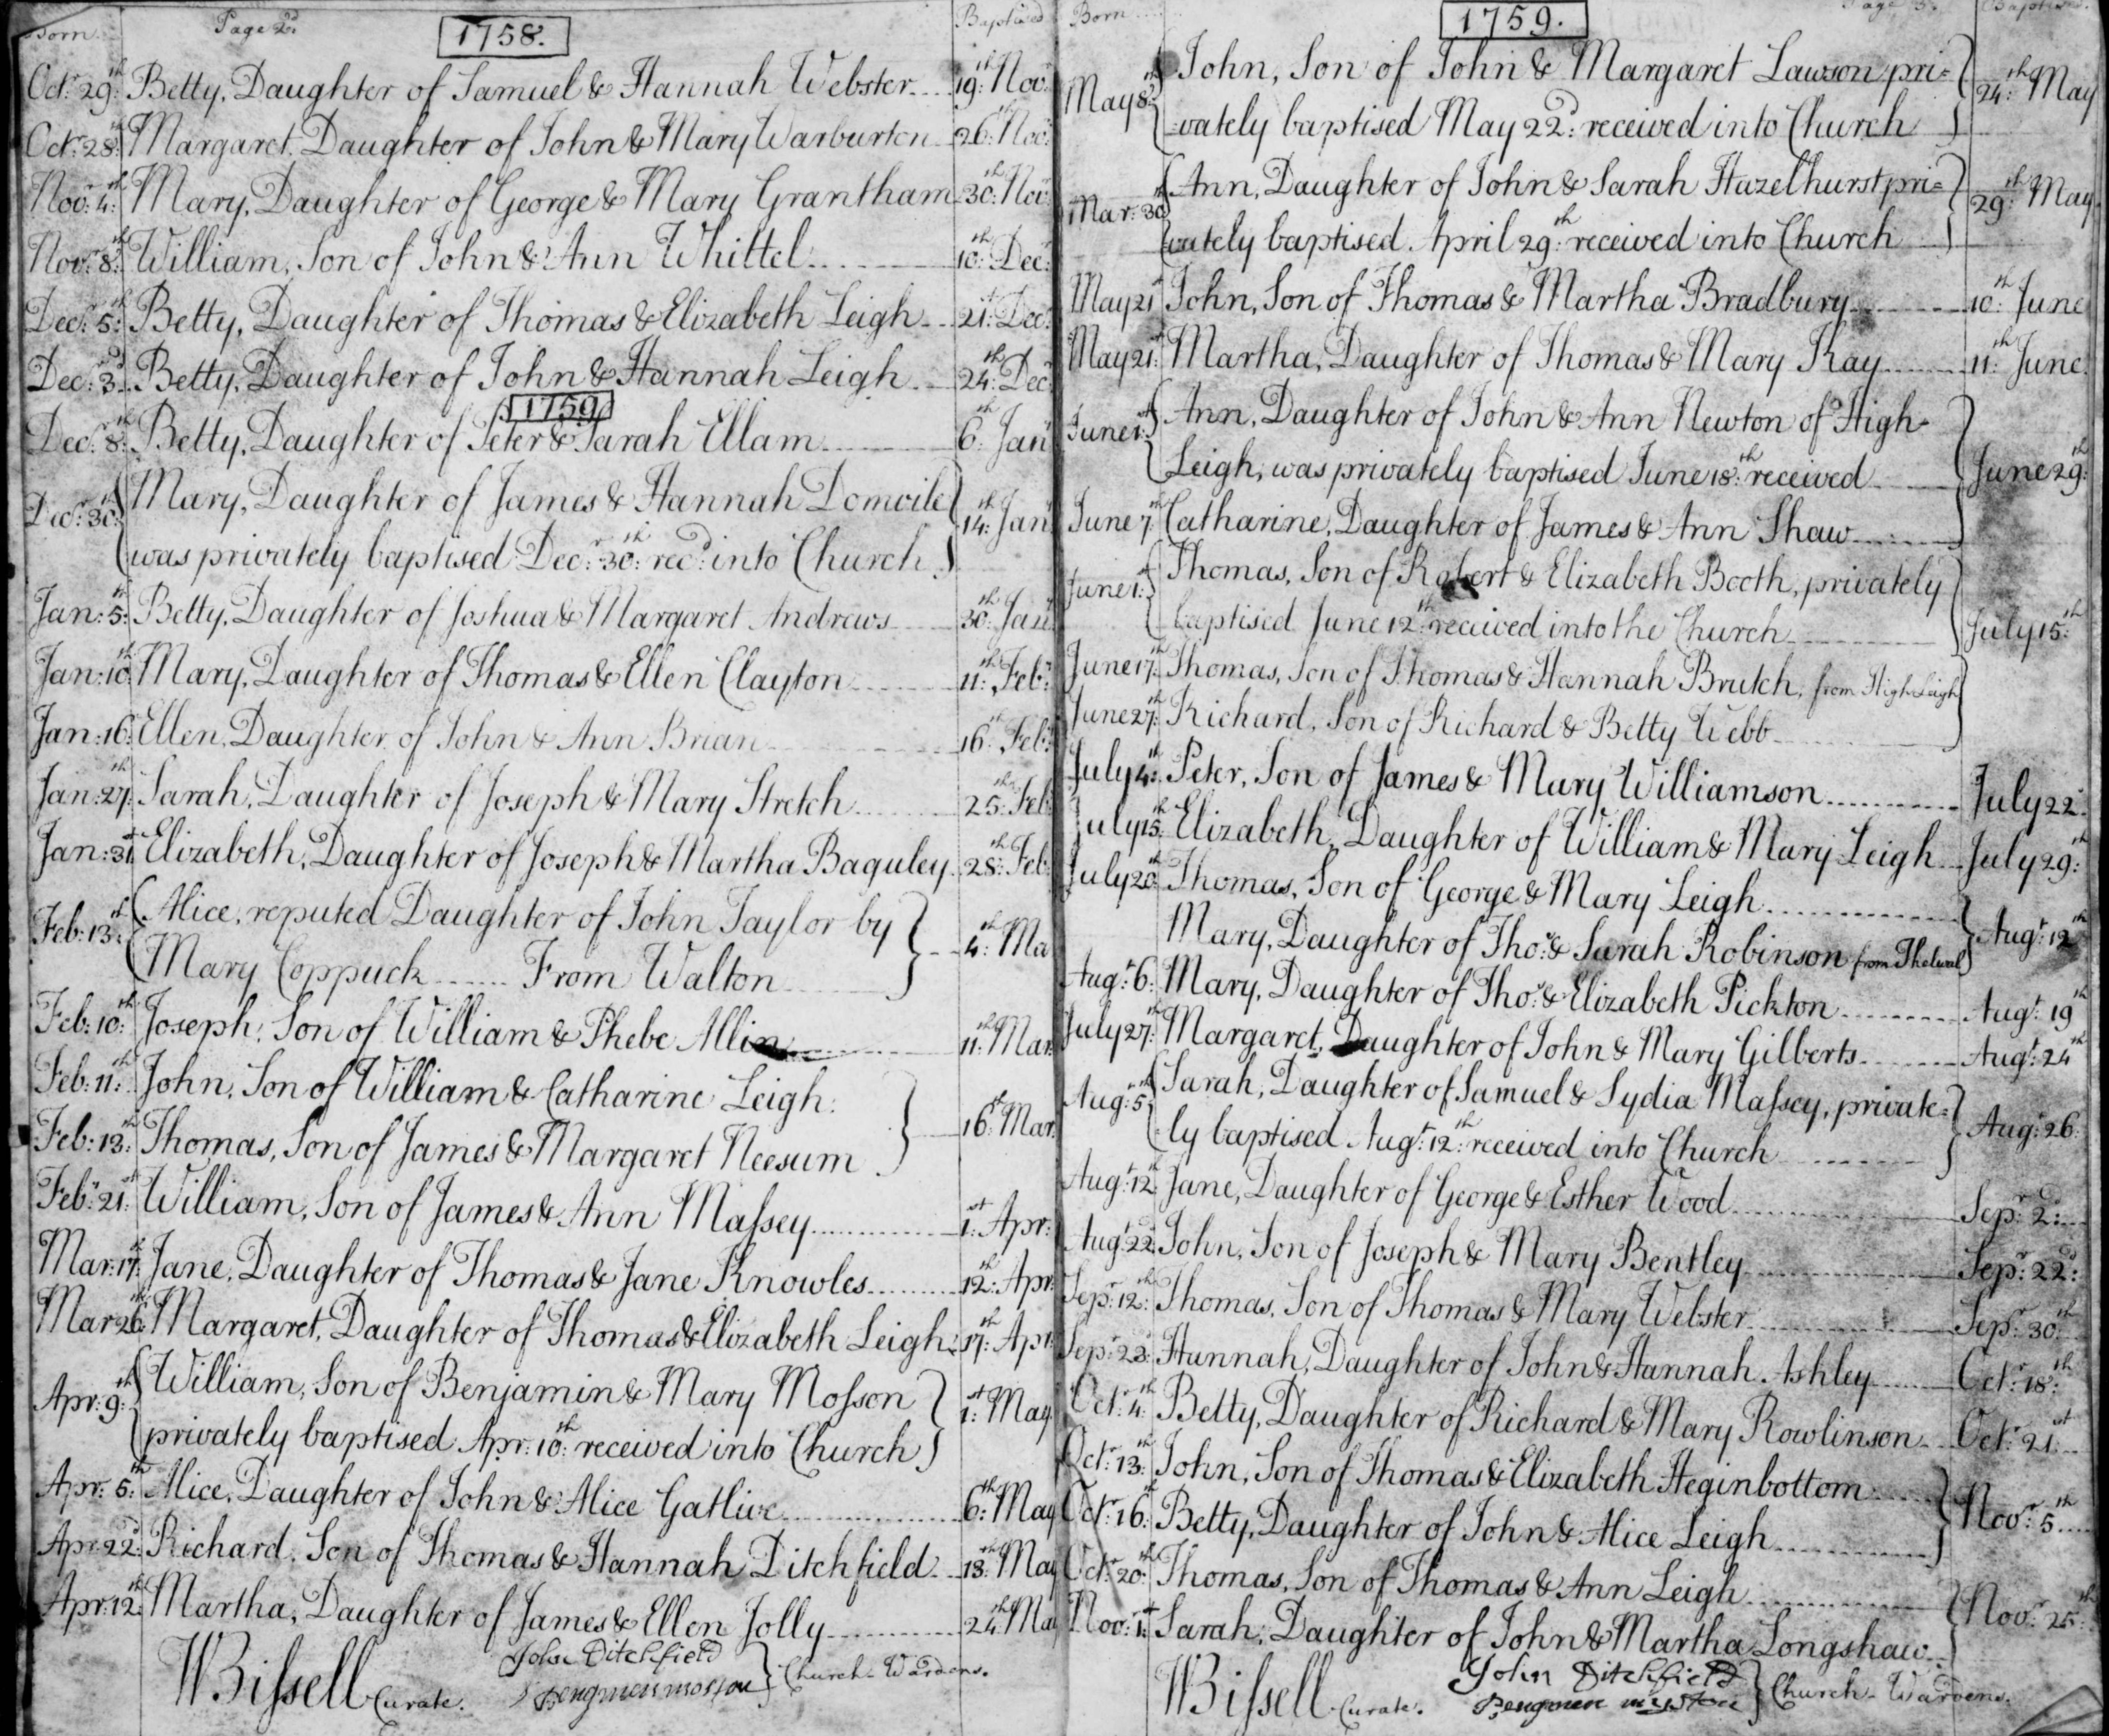 Born Page 2d. 1758. Baptised
Octr. 29th. Betty, Daughter of Samuel & Hannah Webster 19th. Novr.
Octr. 28th. Margaret, Daughter of John & Mary Warburton 26th. Novr.
Novr. 4th. Mary, Daughter of George & Mary Grantham 30th. Novr.
Novr. 8th. William, Son of John & Ann Whittel 10th. Decr.
Decr. 5th. Betty, Daughter of Thomas & Elizabeth Leigh 21st. Decr.
Dec. 3d. Betty, Daughter of John & Hannah Leigh 24th. Decr.
1759
Decr. 8th. Betty, Daughter of Peter & Sarah Ellam 6th. Janr.
Decr. 30th. Mary, Daughter of James & Hannah Domvile
was privately baptised Decr. 30th. recd. into Church 14th. Janr.
Jan: 5th. Betty, Daughter of Joshua & Margaret Andrews 30th. Janr.
Jan: 10th. Mary, Daughter of Thomas & Ellen Clayton 11th. Febr.
Jan: 16th. Ellen, Daughter of John & Ann Brian 16th. Febr.
Jan: 27th. Sarah, Daughter of Joseph & Mary Stretch 25th. Feb
Jan: 31st. Elizabeth, Daughter of Joseph & Martha Baguley 28th. Feb
Feb: 13th. Alice, reputed Daughter of John Taylor by
Mary Coppuck From Walton 4th. Ma
Feb: 10th. Joseph, Son of William & Phebe Allin 11th. Mar.
Feb: 11th. John, Son of William & Catharine Leigh.
Feb: 13th. Thomas, Son of James & Margaret Neesum 16th. Mar.
Febr. 21st. William, Son of James & Ann Maſsey 1st. Apr:
Mar: 17th. Jane, Daughter of Thomas & Jane Knowles 12th. Apr.
Mar 26th. Margaret, Daughter of Thomas & Elizabeth Leigh 17th. Apr.
Apr: 9th. William, Son of Benjamin & Mary Moſson
privately baptised Apr: 10th. received into Church 1st. May
Apr: 5th. Alice, Daughter of John & Alice Gatlive 6th. May
Apr: 22d. Richard, Son of Thomas & Hannah Ditchfield 18th. May
Apr: 12th. Martha, Daughter of James & Ellen Jolly 24th. Ma
WBiſsell Curate. John Ditchfield
Church-Wardens.
Born 1759. Page 3. Baptised
May 8th. John, Son of John & Margaret Lawson pri=
=vately baptised May 22d. received into Church 24th. May
Mar. 30th. Ann, Daughter of John & Sarah Hazelhurst pri=
vately baptised April 29th. received into Church 29th. May
May 21st. John, Son of Thomas & Martha Bradbury 10th. June
May 21st. Martha, Daughter of Thomas & Mary Kay 11th. June
June 1st. Ann, Daughter of John & Ann Newton of High-
Leigh, was privately baptised June 18th. received June 29th.
June 7th. Catharine, Daughter of James & Ann Shaw
June 1st. Thomas, Son of Robert & Elizabeth Booth, privately
baptised June 12th. received into the Church July 15th.
June 17th. Thomas, Son of Thomas & Hannah Brutch, from High Leigh
June 27th. Richard, Son of Richard & Betty Webb
July 4th. Peter, Son of James & Mary Williamson July 22d.
July 15th. Elizabeth, Daughter of William & Mary Leigh July 29th.
July 20th. Thomas, Son of George & Mary Leigh
Mary, Daughter of Thos. & Sarah Robinson from Thelwal Augt. 12th
Augt. 6. Mary, Daughter of Thos. & Elizabeth Pickton Augt. 19th
July 27th. Margaret, Daughter of John & Mary Gilberts Augt. 24th
Aug: 5th. Sarah, Daughter of Samuel & Lydia Maſsey, private=
=ly baptised Augt. 12th. received into Church Augt. 26
Augt. 12th Jane, Daughter of George & Esther Wood Sepr. 2d.
Augt. 22d. John, Son of Joseph & Mary Bentley Sepr. 22d.
Sepr. 12th. Thomas, Son of Thomas & Mary Webster Sepr. 30th.
Sepr. 23d. Hannah, Daughter of John & Hannah Ashley Octr. 18th.
Octr. 4th. Betty, Daughter of Richard & Mary Rowlinson Octr. 21st.
Octr. 13th. John, Son of Thomas & Elizabeth Heginbottom
Octr. 16th. Betty, Daughter of John & Alice Leigh Novr. 5th
Octr. 20th. Thomas, Son of Thomas & Ann Leigh
Novr. 1st. Sarah, Daughter of John & Martha Longshaw Novr. 25th.
WBiſsell Curate. John Ditchfield
Church-Wardens.